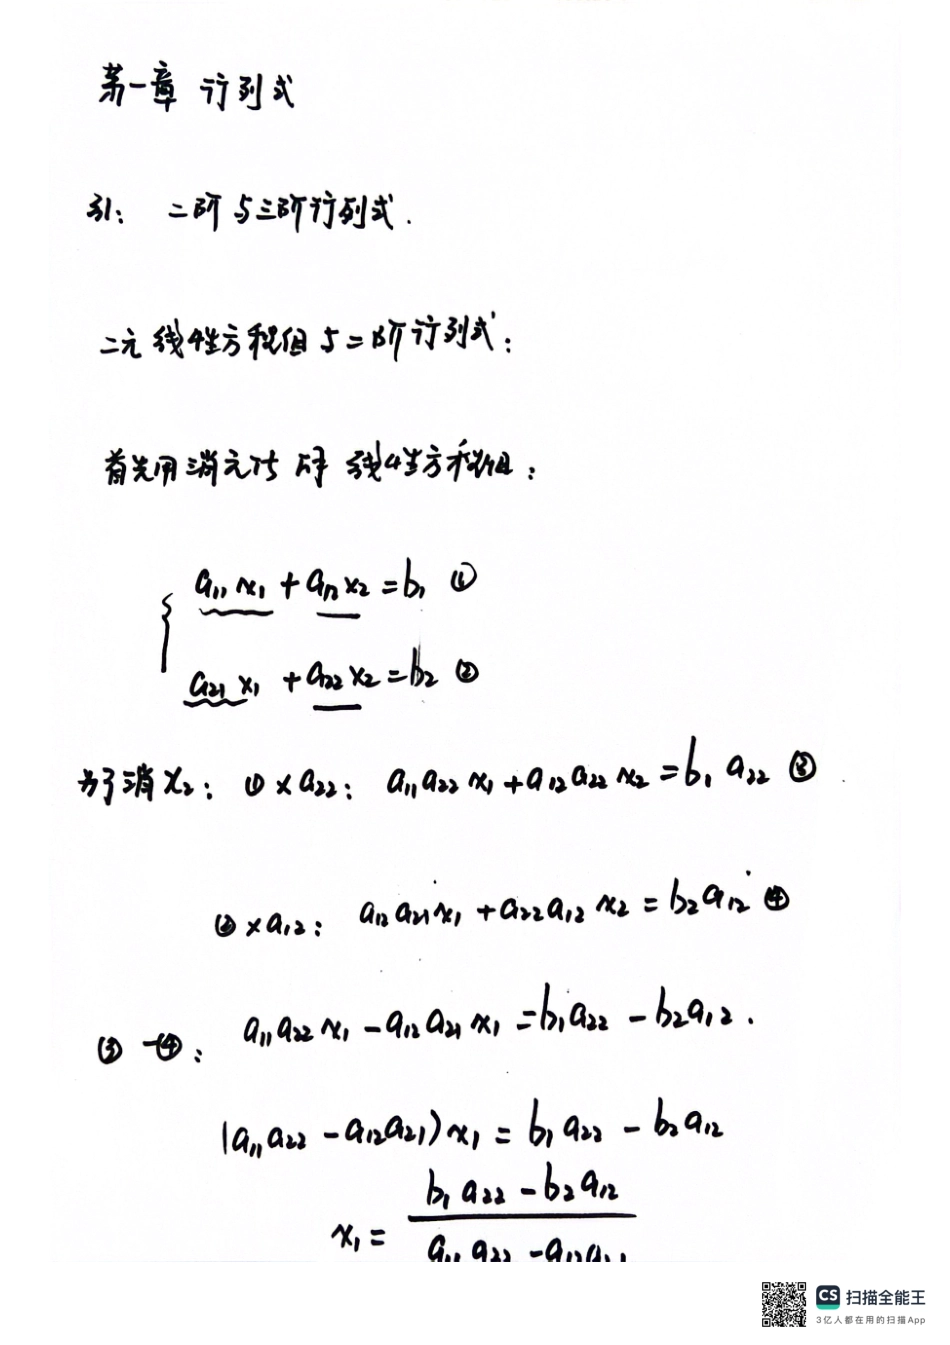 第一章 行列式
引: 二阶与三阶行列式.
二元线性方程组与二阶行列式:
首先用消元法解线性方程组:
a₁₁x₁+a₁₂x₂=b₁ ①
a₂₁x₁+a₂₂x₂=b₂ ②
为了消x₂: ①×a₂₂: a₁₁a₂₂x₁+a₁₂a₂₂x₂=b₁a₂₂ ③
②×a₁₂: a₁₂a₂₁x₁+a₂₂a₁₂x₂=b₂a₁₂ ④
③-④: a₁₁a₂₂x₁-a₁₂a₂₁x₁=b₁a₂₂-b₂a₁₂.
(a₁₁a₂₂-a₁₂a₂₁)x₁=b₁a₂₂-b₂a₁₂
b₁a₂₂-b₂a₁₂
x₁=
a₁₁a₂₂-a₁₂a₂₁
CS 扫描全能王
3亿人都在用的扫描App